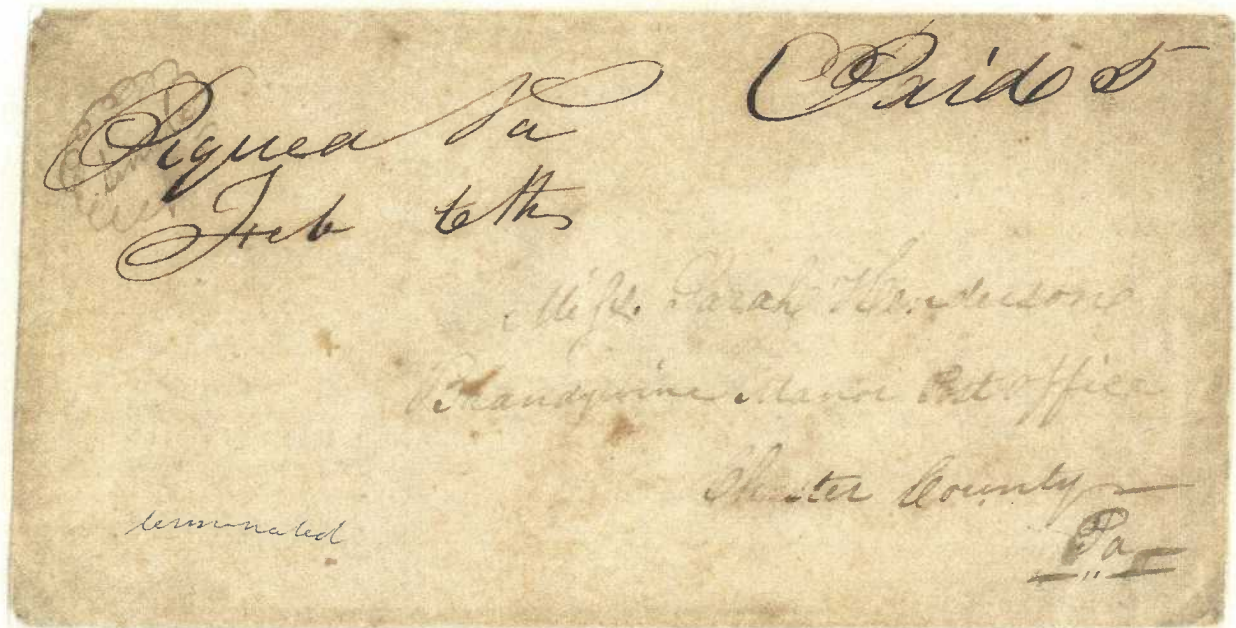 Pequea Pa
Feb 6th
Paid 5
Miss. Sarah Hendersone
Brandywine Manor Post office
Chester County
Pa
terminated